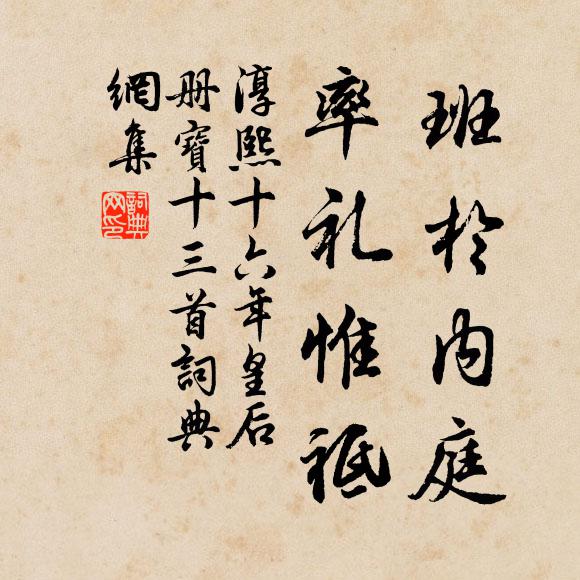 班於内庭
率礼惟祗
淳熙十六年皇后
册寶十三首詞典
網集
詞典網印